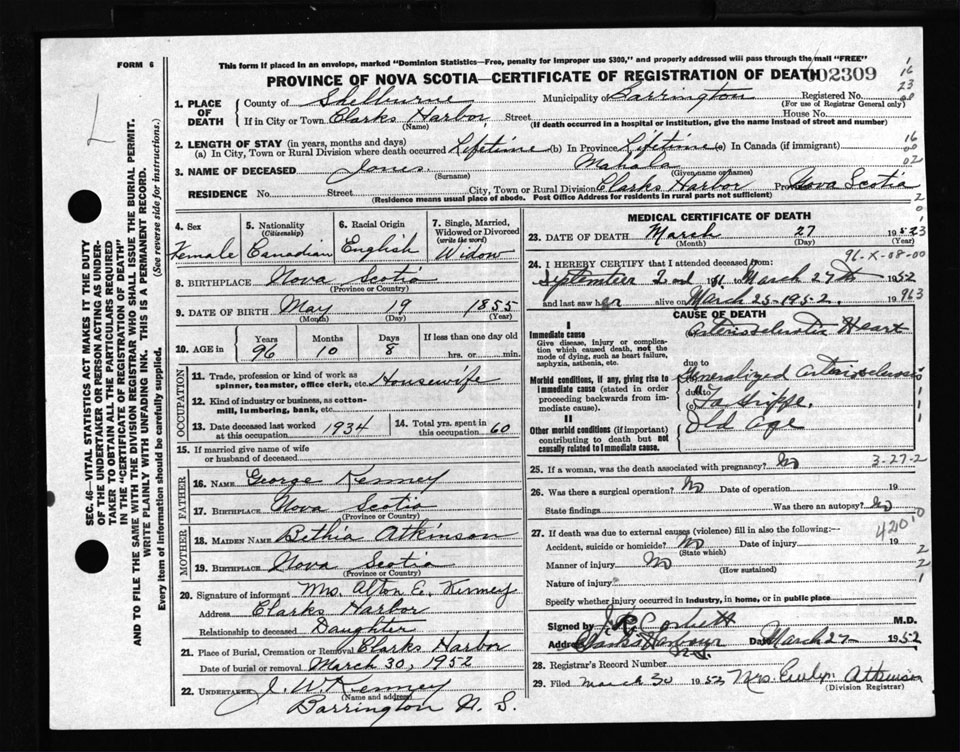 FORM 6
This form if placed in an envelope, marked "Dominion Statistics—Free, penalty for improper use $300," and properly addressed will pass through the mail "FREE"
PROVINCE OF NOVA SCOTIA—CERTIFICATE OF REGISTRATION OF DEATH
002309
1. PLACE OF DEATH
County of Shelburne Municipality of Barrington Registered No.
(For use of Registrar General only)
If in City or Town Clarks Harbor Street House No.
(Name) (If death occurred in a hospital or institution, give the name instead of street and number)
2. LENGTH OF STAY (in years, months and days)
(a) In City, Town or Rural Division where death occurred Lifetime (b) In Province Lifetime (c) In Canada (if immigrant)
3. NAME OF DECEASED Jones Mahala
(Surname) (Given name or names)
RESIDENCE No. Street City, Town or Rural Division Clarks Harbor Province Nova Scotia
(Residence means usual place of abode. Post Office Address for residents in rural parts not sufficient)
4. Sex Female
5. Nationality (Citizenship) Canadian
6. Racial Origin English
7. Single, Married, Widowed or Divorced (write the word) Widow
8. BIRTHPLACE Nova Scotia
(Province or Country)
9. DATE OF BIRTH May 19 1855
(Month) (Day) (Year)
10. AGE in Years Months Days If less than one day old
96 10 8 hrs. or min.
OCCUPATION
11. Trade, profession or kind of work as spinner, teamster, office clerk, etc. Housewife
12. Kind of industry or business, as cotton-mill, lumbering, bank, etc.
13. Date deceased last worked at this occupation 1934
14. Total yrs. spent in this occupation 60
15. If married give name of wife or husband of deceased
FATHER
16. NAME George Kenney
17. BIRTHPLACE Nova Scotia
(Province or Country)
MOTHER
18. MAIDEN NAME Bethia Atkinson
19. BIRTHPLACE Nova Scotia
(Province or Country)
20. Signature of informant Mrs. Alton E. Kenney
Address Clarks Harbor
Relationship to deceased Daughter
21. Place of Burial, Cremation or Removal Clarks Harbor
Date of burial or removal March 30, 1952
22. UNDERTAKER J. W. Kenney
(Name and address)
Barrington N. S.
MEDICAL CERTIFICATE OF DEATH
23. DATE OF DEATH March 27 1952
(Month) (Day) (Year)
96-X-08-00
24. I HEREBY CERTIFY that I attended deceased from:
September 2nd 1951 to March 27th 1952
and last saw her alive on March 25-1952. 19
963
CAUSE OF DEATH
I
Immediate cause
Give disease, injury or complication which caused death, not the mode of dying, such as heart failure, asphyxia, asthenia, etc.
Arteriosclerotic Heart
Morbid conditions, if any, giving rise to immediate cause (stated in order proceeding backwards from immediate cause).
due to
Generalized Arteriosclerosis
due to
(c) La Grippe.
II
Other morbid conditions (if important) contributing to death but not causally related to immediate cause.
Old Age
25. If a woman, was the death associated with pregnancy? No
3-27-2
26. Was there a surgical operation? No Date of operation 19
State findings Was there an autopsy? No
4200
27. If death was due to external causes (violence) fill in also the following:—
Accident, suicide or homicide? No Date of injury 19
(State which)
Manner of injury No
(How sustained)
Nature of injury
Specify whether injury occurred in industry, in home, or in public place
Signed by Corbett M.D.
Address Clarks Harbour N.S. Date March 27- 1952
28. Registrar's Record Number
29. Filed March 30 1952 Mrs. Evelyn Atkinson
(Division Registrar)
SEC. 46—VITAL STATISTICS ACT MAKES IT THE DUTY
OF THE UNDERTAKER OR PERSON ACTING AS UNDERTAKER
TO OBTAIN ALL THE PARTICULARS REQUIRED
IN THE "CERTIFICATE OF REGISTRATION OF DEATH"
AND TO FILE THE SAME WITH THE DIVISION REGISTRAR WHO SHALL ISSUE THE BURIAL PERMIT.
WRITE PLAINLY WITH UNFADING INK. THIS IS A PERMANENT RECORD.
Every item of information should be carefully supplied. (See reverse side for instructions.)